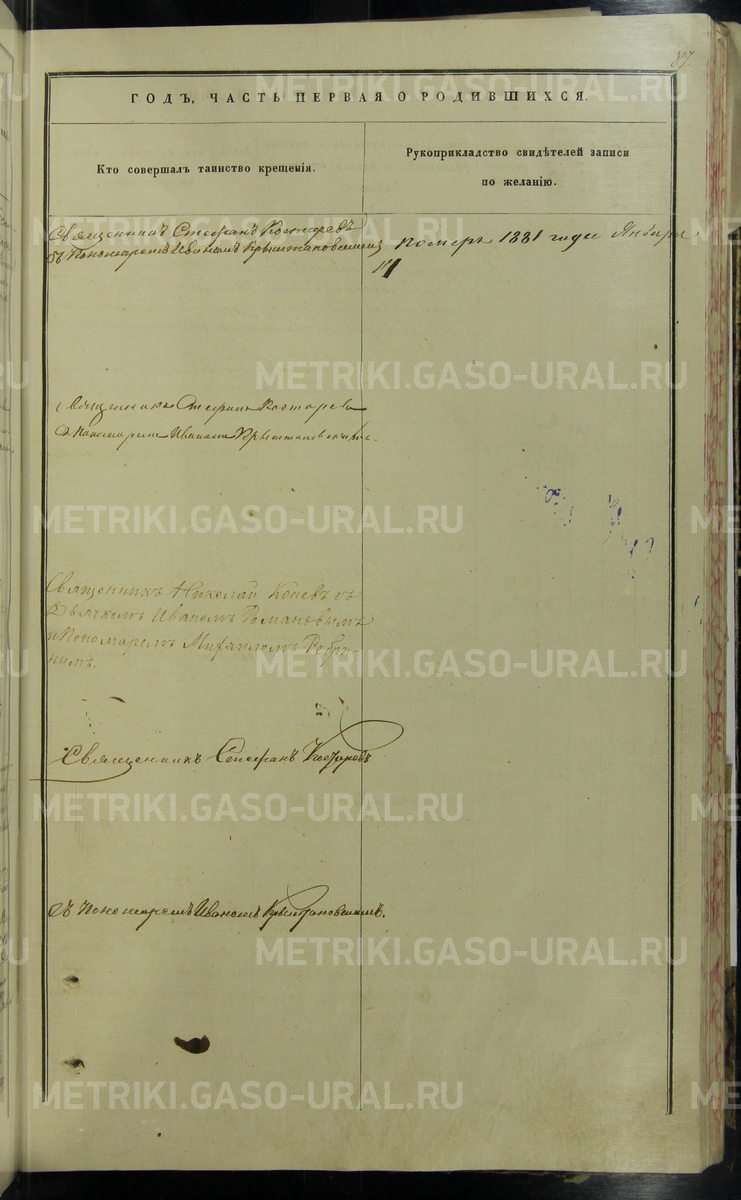 87.
ГОДЪ, ЧАСТЬ ПЕРВАЯ О РОДИВШИХСЯ.
Кто совершалъ таинство крещенія.
Рукоприкладство свидѣтелей записи
по желанію.
Священникъ Стефанъ Костаревъ
съ Пономаремъ Иваномъ Крыштановскимъ
Померъ 1881 года Января
Священникъ Стефанъ Костаревъ
съ Пономаремъ Иваномъ
Священникъ Николай Коневъ съ
Дьячкомъ Иваномъ Романовымъ
и Пономаремъ Михаиломъ Ребри-
нымъ.
Священникъ Стефанъ Костаревъ
съ Пономаремъ Иваномъ Крыштановскимъ.
METRIKI.GASO-URAL.RU